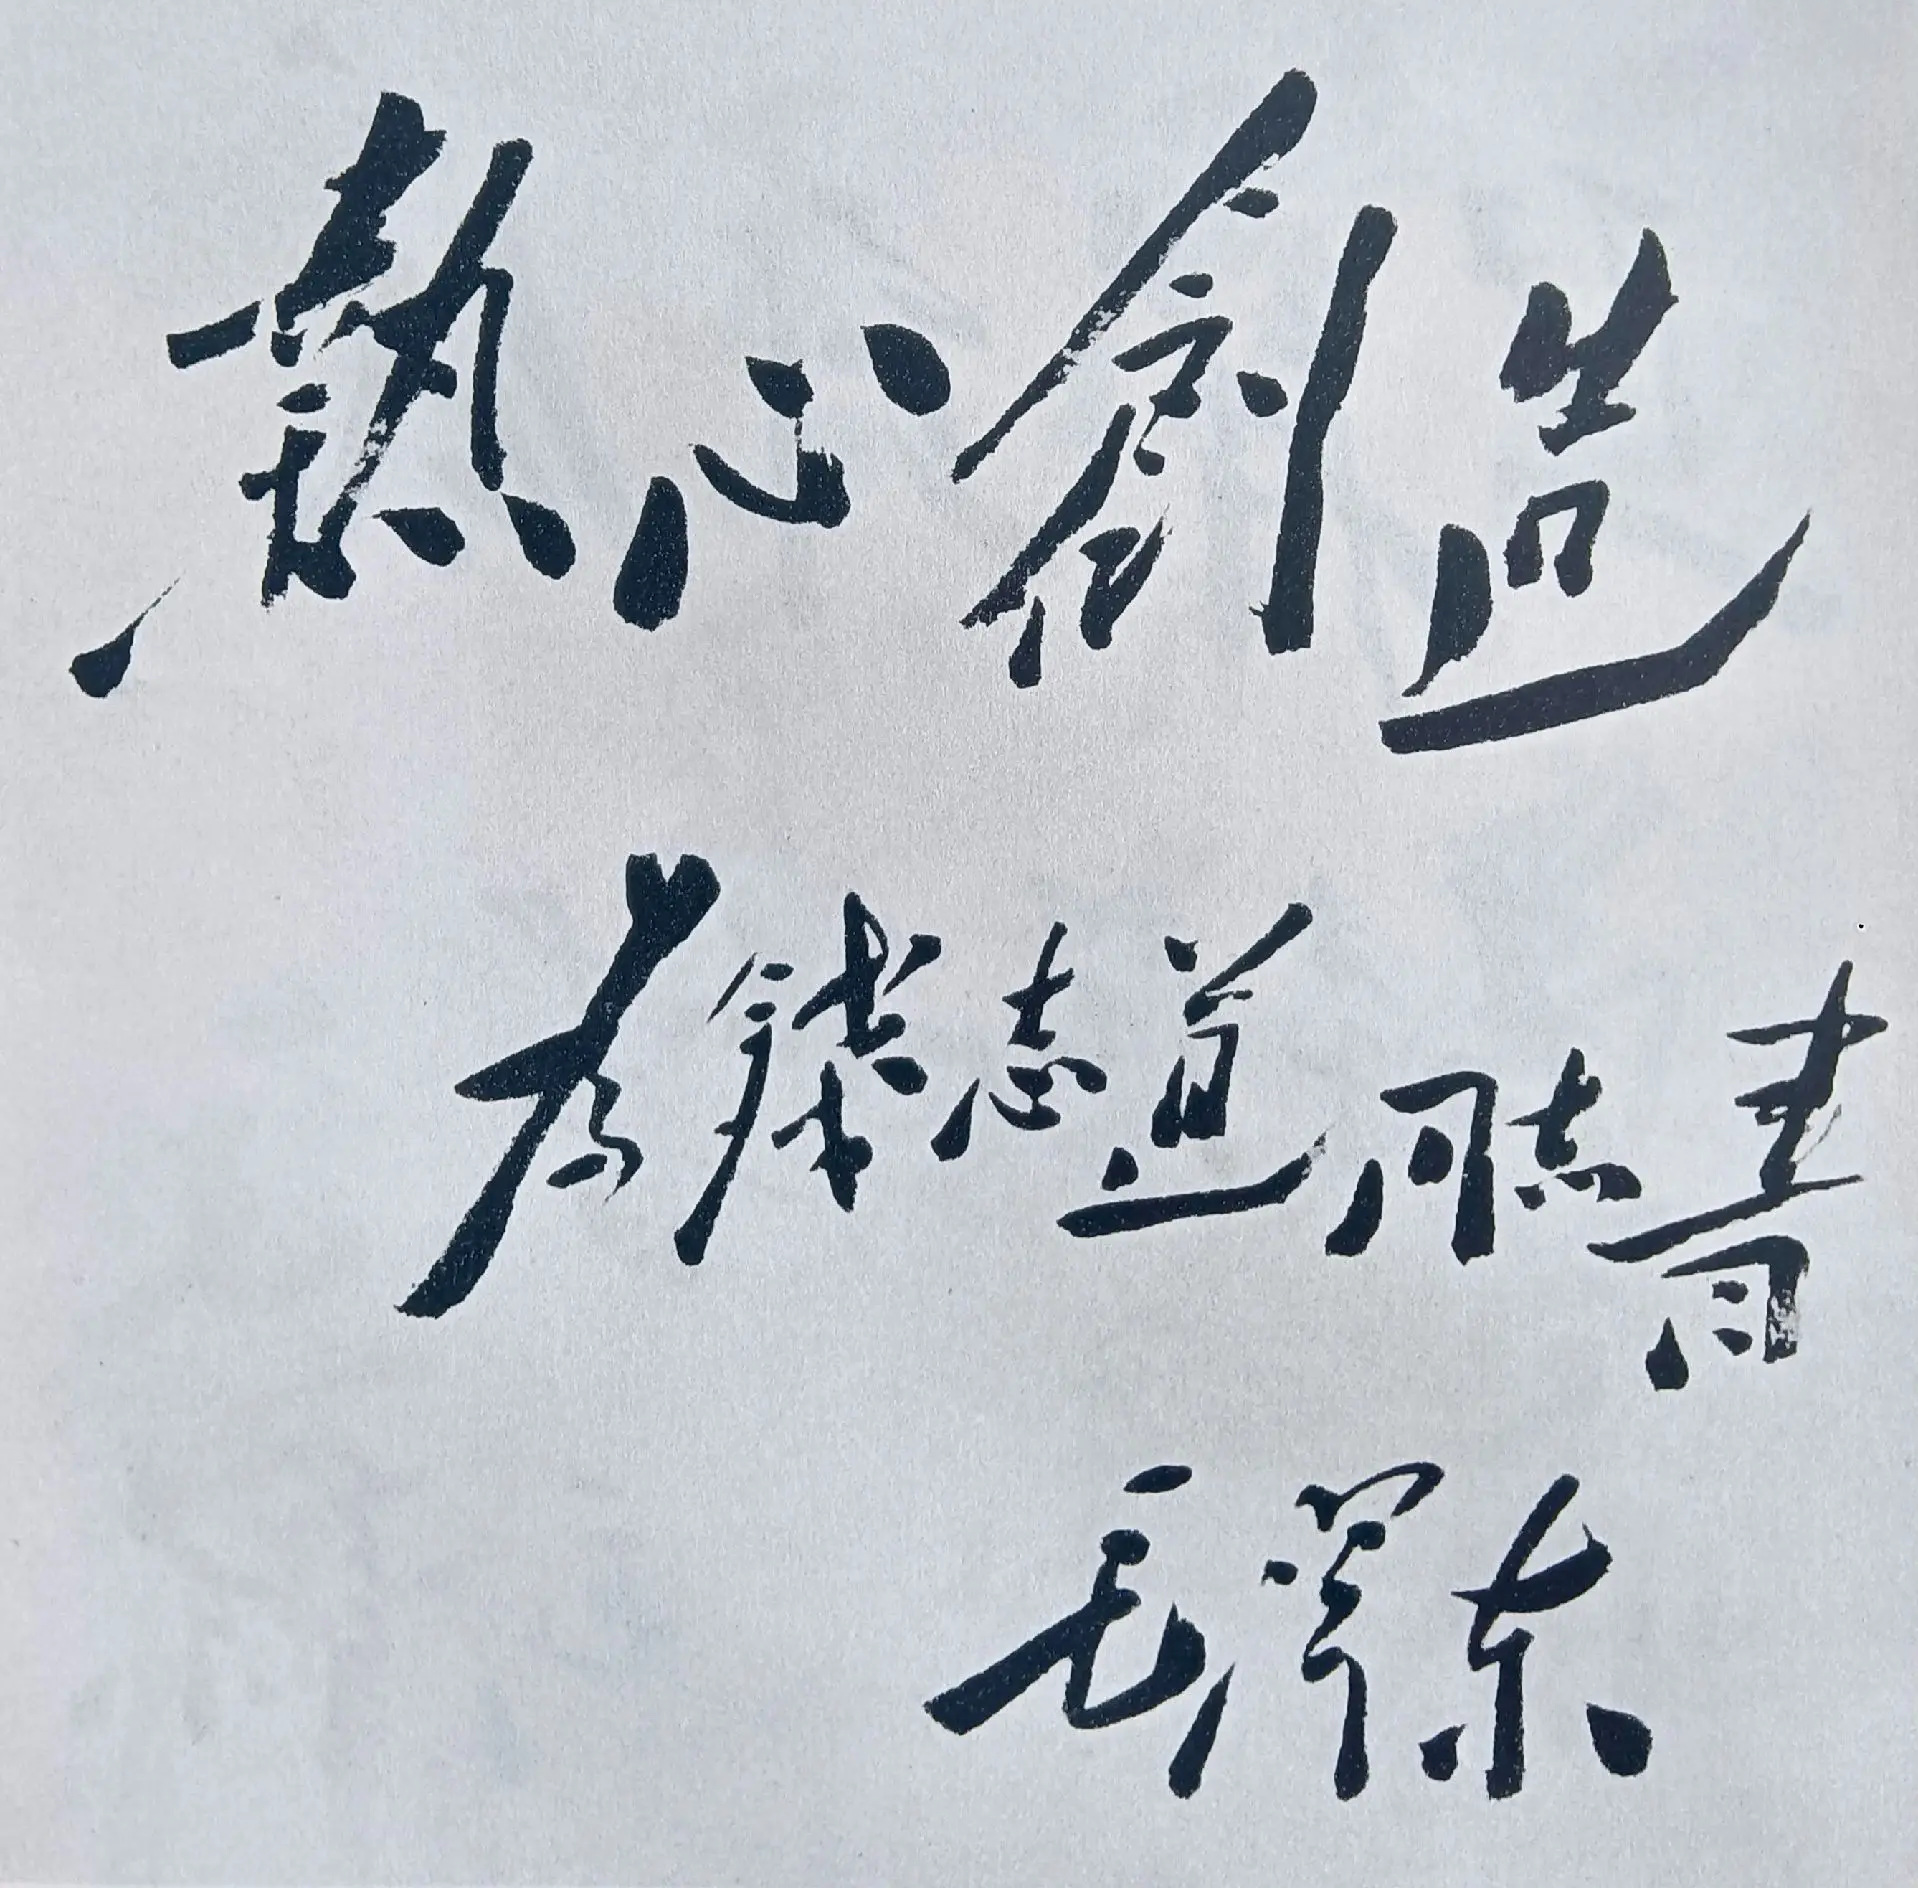 熱心創造
為錢志道同志書
毛澤东